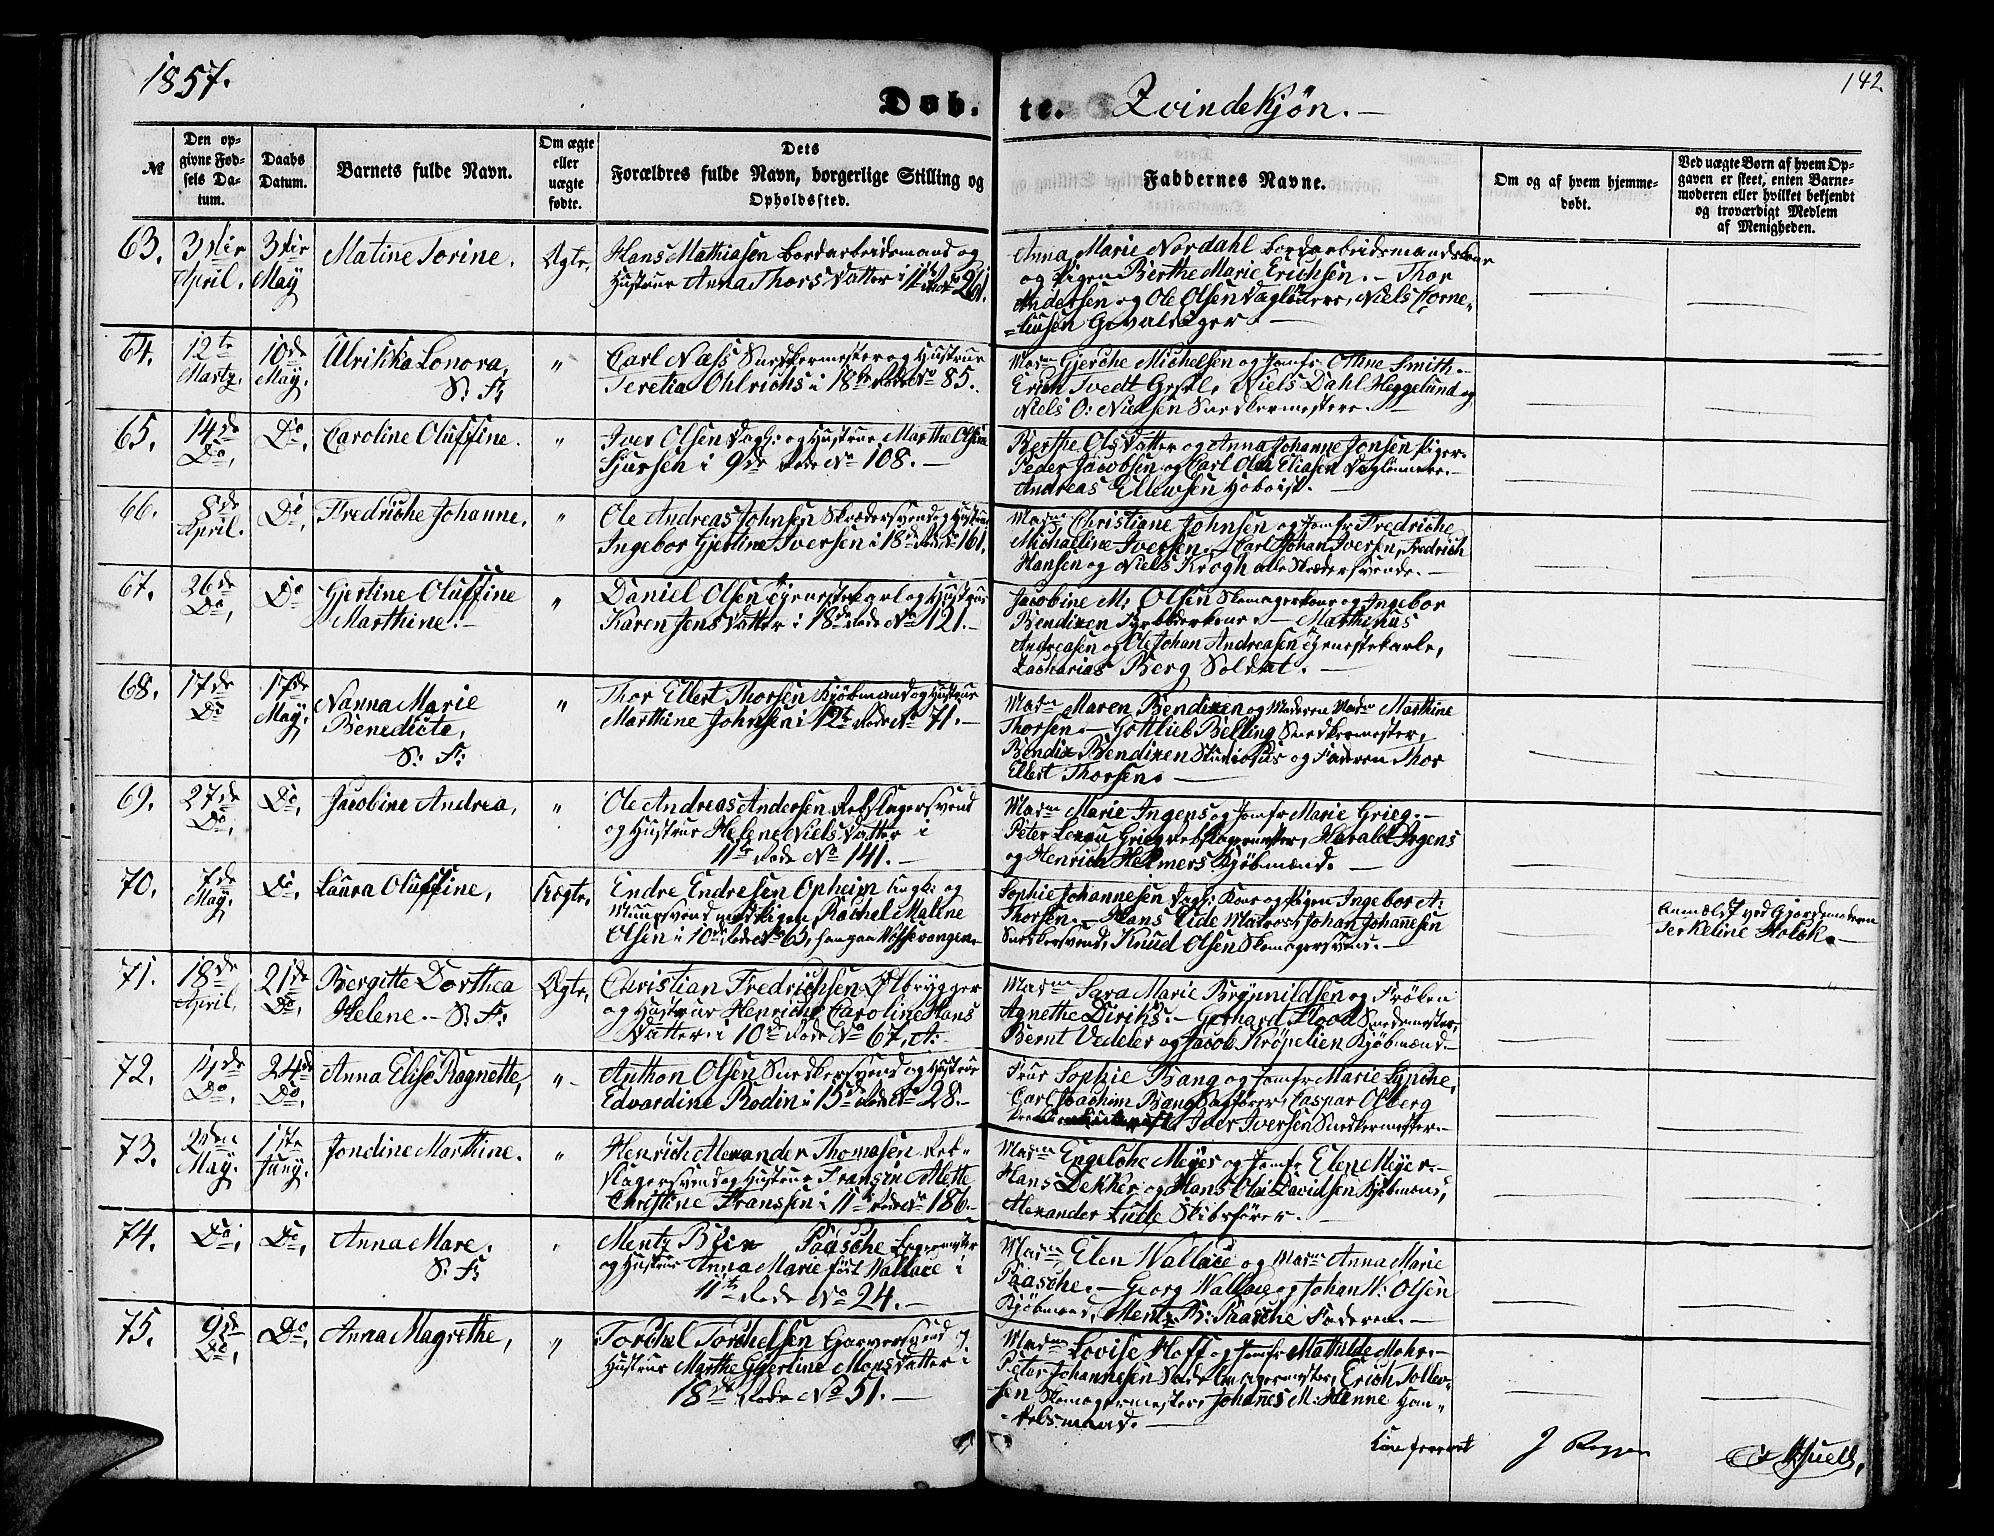 1857.
142.
Døb. te. Qvindekjøn.
№
Den op-
givne Fød-
sels Da-
tum.
Daabs
Datum.
Barnets fulde Navn.
Om ægte
eller
uægte
fødte.
Dets
Forældres fulde Navn, borgerlige Stilling og
Opholdssted.
Faddernes Navne.
Om og af hvem hjemme-
døbt.
Ved uægte Børn af hvem Op-
gaven er skeet, enten Barne-
moderen eller hvilket bekjendt
og troværdigt Medlem
af Menigheden.
63. April. May Matine Torine. Ægte,
Hans Mathiasen Bordarbeidsmand og
Hustrue Anna Thors Datter i
Anna Marie Nordahl Bordarbeidsmandskone
og Pigen Berthe Marie Erichsen. Thor
Andersen og Ole Olsen Dagl Niels Corne-
liusen
64. 12te Martz. 10de May. Ulrikka Lonora, S. F. "
Carl Næss Snedkermester og Hustrue
Teretia Ohlrichs i 18de Rode No 85.
Madm Gjersche Michelsen og Jomfr Othine Smith.
Tvedt Niels Dahl Heggelund og
Niels O: Nielsen Snedkermestere.
65. 14de Do, Do, Caroline Oluffine. "
Iver Olsen Dagl: og Hustrue Marthe
Sjursen i 9de Rode No 108.
Berthe Ols Datter og Anna Johanne Jonsen Piger.
Peder Jacobsen og Carl Eliasen
Andreas Ellewsen Hoboist.
66. 8de April. Do, Fredriche Johanne, "
Ole Andreas Johnsen Skrædersvend og Hustrue
Ingebor Gjertine Iversen i 18de Rode No 161.
Madm Christiane Johnsen og Jomfr Fredriche
Michaeline Iversen. Carl Johan Iversen, Fredrich
Hansen og Niels Krogh alle Skrædersvende.
67. 26de Do, Do Gjertine Oluffine
Marthine. "
Daniel Olsen Tjenestekarl og Hustrue
Karen Jens Datter i 18de Rode No 121.
Jacobine M: Olsen Skomagerkone og Ingebor
Bendixen Marthinus
Andreasen og Ole Johan Andreasen Tjenestekarle,
Zacharias Berg Soldat.
68. 17de Do 17de May, Nanna Marie
Benedicte,
S: F: "
Thor Ellert Thorsen Kjøbmand og Hustrue
Marthine Johnsen i 12te Rode No 71.
Madm Maren Bendixen og Moderen Madm Marthine
Thorsen. Gottlieb Belling Snedkermester,
Bendix Bendixen Studiosus og Faderen Thor
Ellert Thorsen.
69. 27de Do, Do, Jacobine Andrea, "
Ole Andreas Andersen Rebslagersvend
og Hustrue Helene Niels Datter i
11te Rode No 141.
Madm Marie Ingens og Jomfr Marie Grieg.
Peter Grieg Rebslagermester, Harald Irgens
og Henrich Helmers Kjøbmænd.
70. 7de May, Do, Laura Oluffine, Uægte,
Endre Endresen Opheim Ungk: og
Muursvend med Pigen Rachel Malene
Olsen i 10de Rode No 63,
Sophie Johannesen Dagl: Kone og Pigen Ingebor A:
Thorsen. Hans Eide Matros, Johan Johanesen
Snedkersvend, Knud Olsen Skomagersvend.
Anmeldt ved Gjordemoderen
Terkeline Holck.
71. 18de April, 21de Do, Bergitte Dorthea
Helene. S. F: Ægte,
Christian Fredrichsen Ølbrygger
og Hustrue Henriche Caroline Hans
Datter i 10de Rode No 67, A:
Madm Sara Marie Brynnildsen og Frøken
Agnethe Diriks. Gerhard Flood Smedemester,
Bernt Vedeler og Jacob Krøpelien Kjøbmænd.
72. 14de Do, 24de Do, Anna Elise Ragnette, "
Anthon Olsen Snedkersvend og Hustrue
Edvardine Rodin i 15de Rode No 28.
Frue Sophie Bang og Jomfr Marie Lynche,
Carl Joachim Bang Caspar Olberg
Iver Iversen Snedkermester.
73. 2den May, 1ste Juny, Jondine Marthine. "
Henrich Alexander Thomasen Reb-
slagersvend og Hustrue Fransin Alette
Christine Franssen i 11te Rode No 186.
Madm Engelche Meyer og Jomfr Elene Meyer.
Hans Dekker og Hans Olai Davidsen Kjøbmænd,
Alexander Lude Skibsfører.
74. Do, Do, Anna Mare. S. F. "
Mentz Paasche
og Hustrue Anna Marie født Wallace i
11te Rode No 24.
Madm Elen Wallace og Madm Anna Marie
Paasche. Georg Wallace og Johan W: Olsen
Kjøbmænd, Mentz B: Paasche Faderen.
75. 9de Do, Do, Anna Magrethe, "
Torchel Torchelsen Garversvend og
Hustrue Marthe Gjertine Mons Datter i
18de Rode No 51.
Madm Lovise Hoff og Jomfr Mathilde Mohr.
Peter Johannesen Erich Toller-
sen Skomagermester, Johannes M: Henne Han-
delsmand.
Conferreret